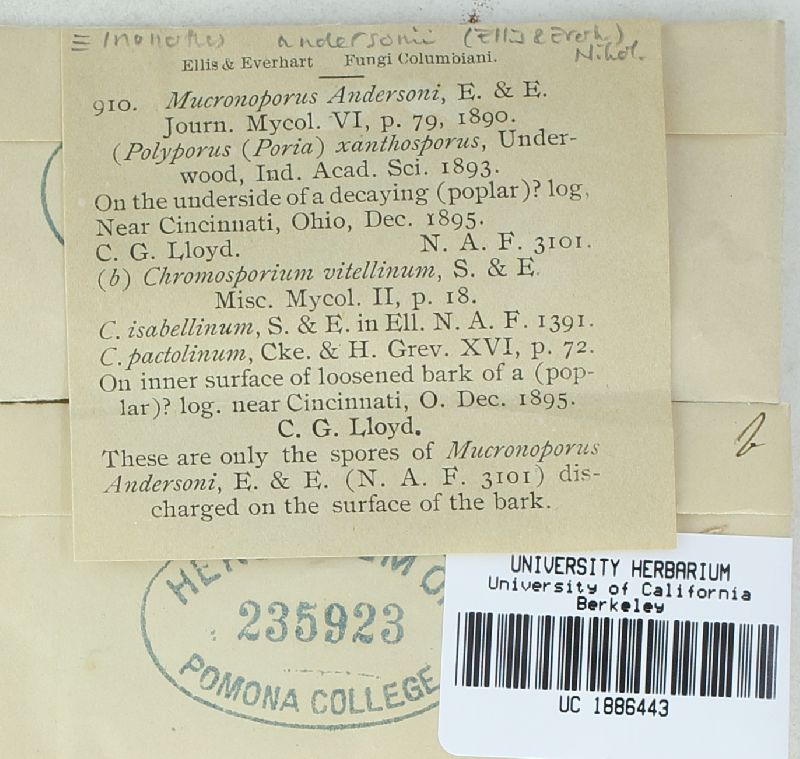 ≡ Inonotus andersonii (Ellis & Everh.)
Nikol.
Ellis & Everhart Fungi Columbiani.
910. Mucronoporus Andersoni, E. & E.
Journ. Mycol. VI, p. 79, 1890.
(Polyporus (Poria) xanthosporus, Under-
wood, Ind. Acad. Sci. 1893.
On the underside of a decaying (poplar)? log,
Near Cincinnati, Ohio, Dec. 1895.
C. G. Lloyd. N. A. F. 3101.
(b) Chromosporium vitellinum, S. & E.
Misc. Mycol. II, p. 18.
C. isabellinum, S. & E. in Ell. N. A. F. 1391.
C. pactolinum, Cke. & H. Grev. XVI, p. 72.
On inner surface of loosened bark of a (pop-
lar)? log. near Cincinnati, O. Dec. 1895.
C. G. Lloyd.
These are only the spores of Mucronoporus
Andersoni, E. & E. (N. A. F. 3101) dis-
charged on the surface of the bark.
b
235923
POMONA COLLEGE
UNIVERSITY HERBARIUM
University of California
Berkeley
UC 1886443